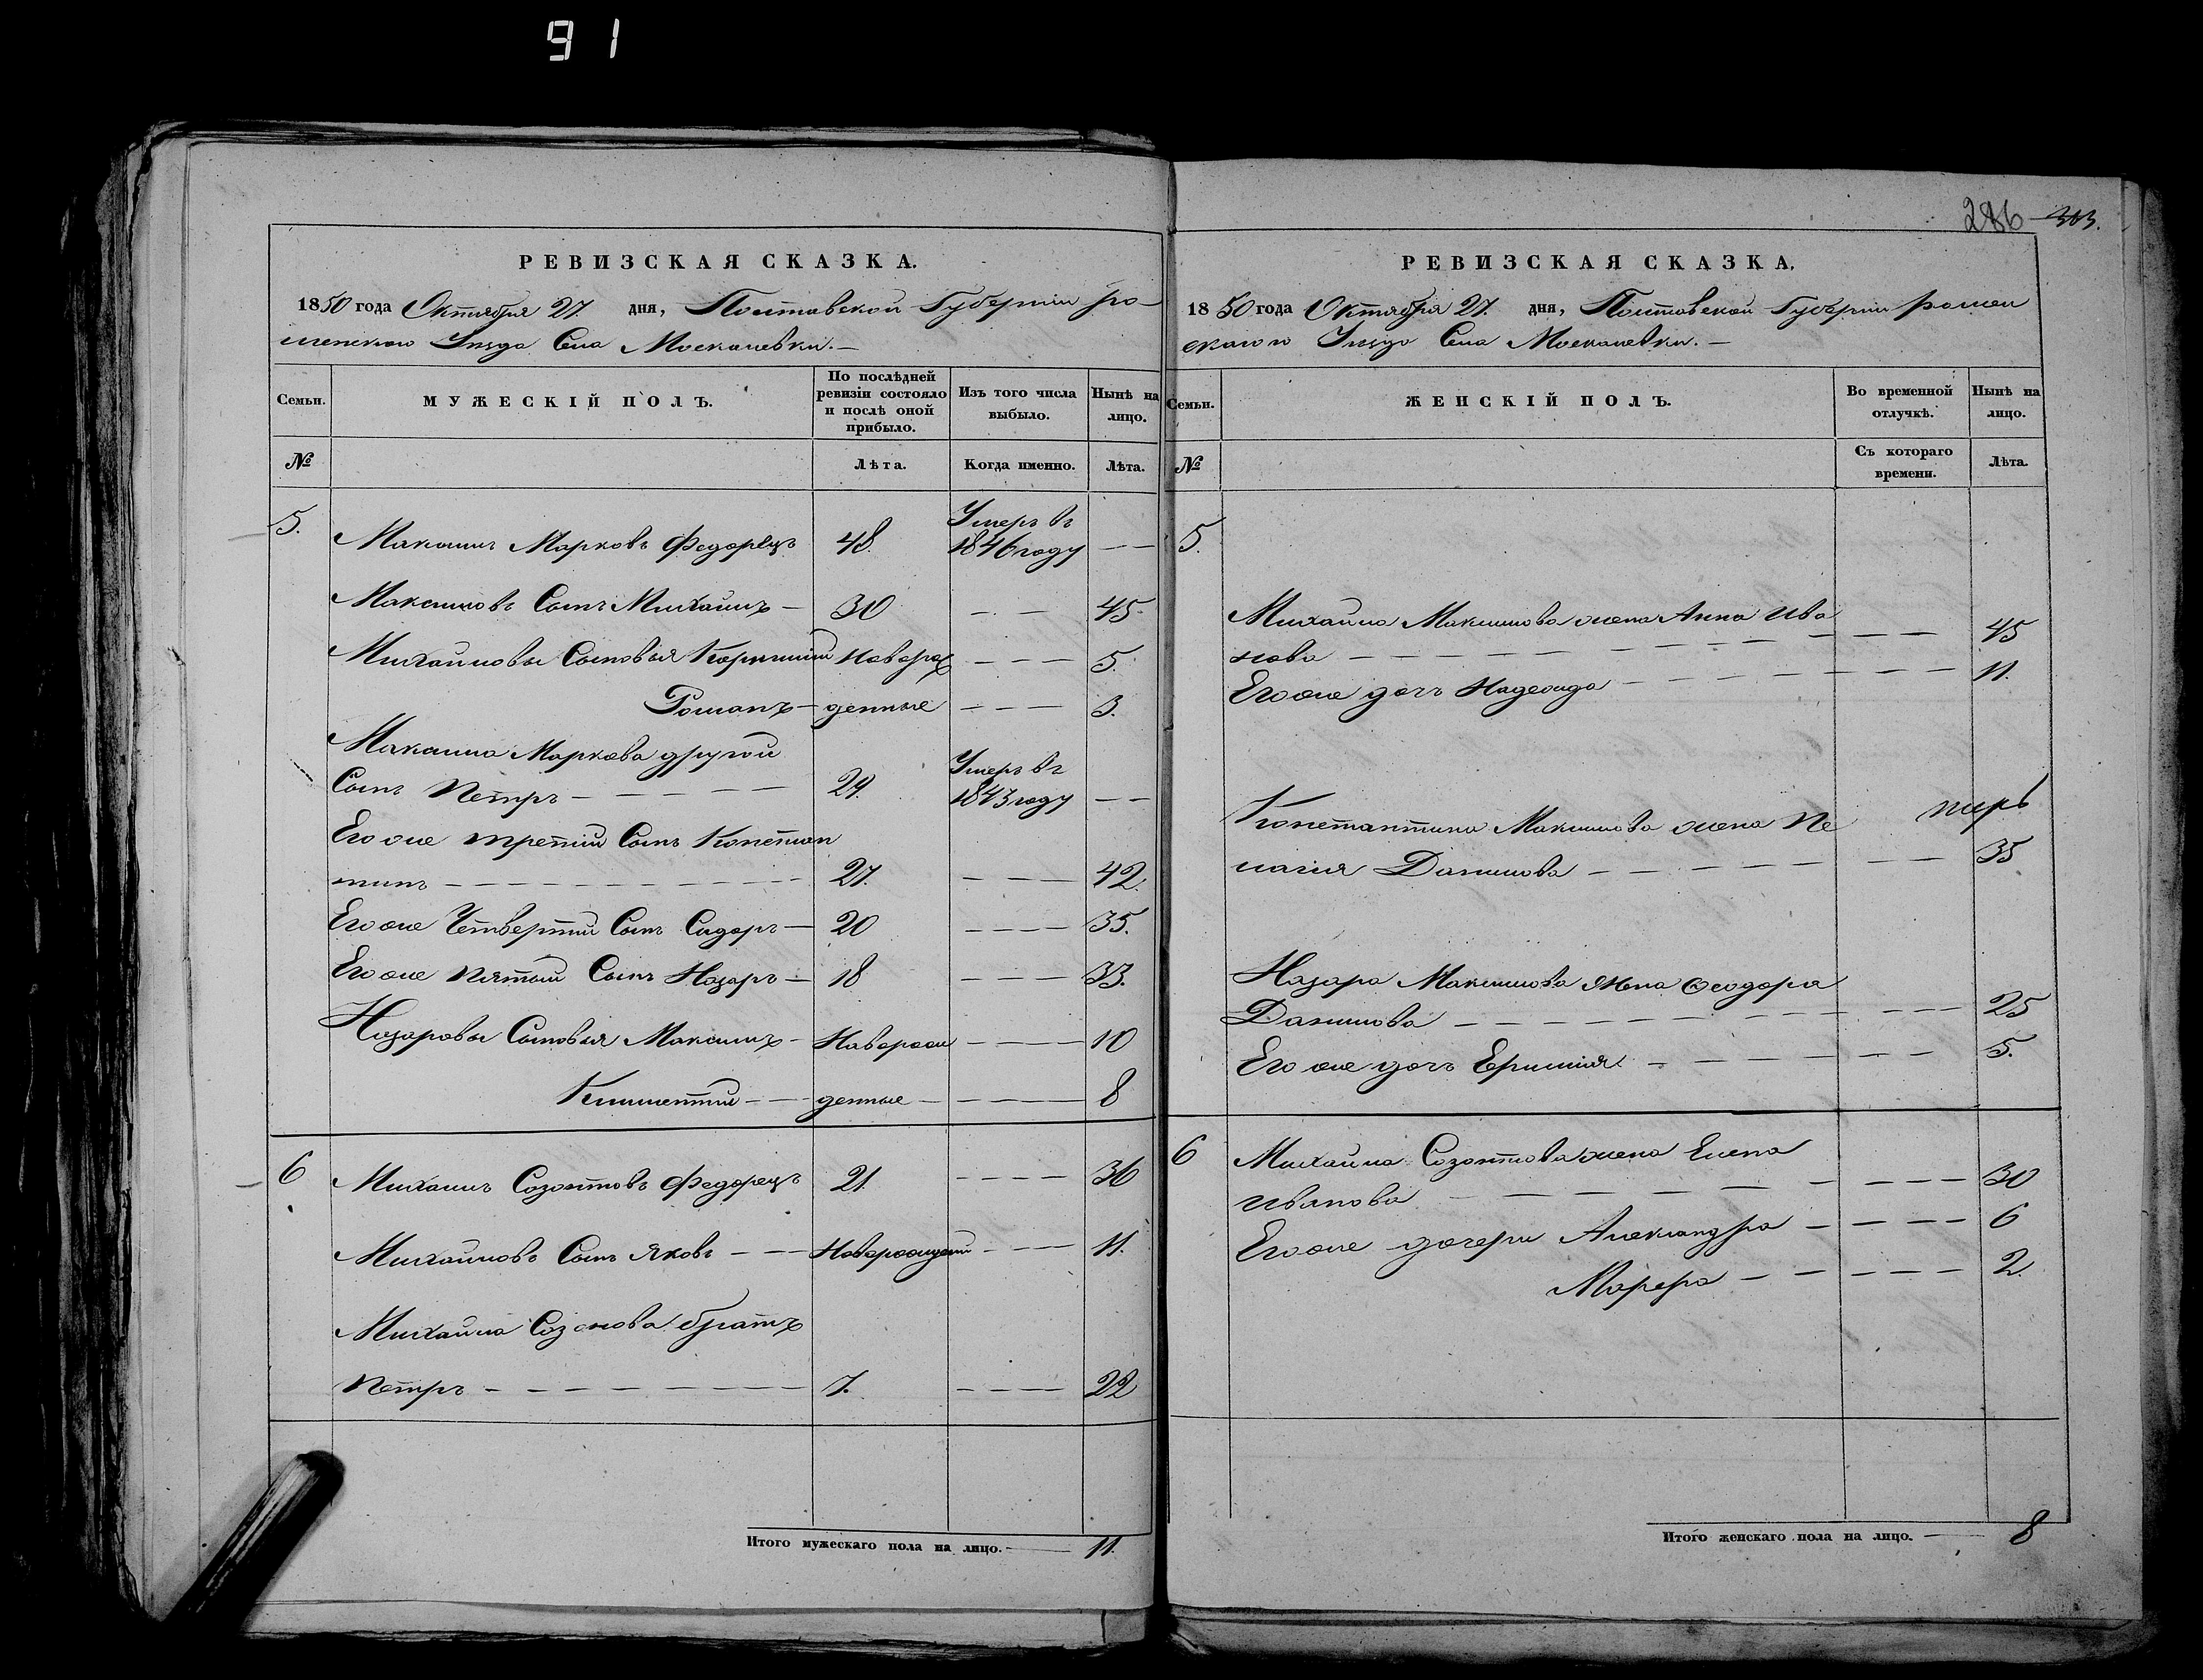 91
286 303.
РЕВИЗСКАЯ СКАЗКА.
1850 года Октября 27. дня, Полтавской Губерніи Ро-
менскаго Уезда Села Москалевки.
Семьи.
МУЖЕСКІЙ ПОЛЪ.
По послѣдней ревизіи состояло и послѣ оной прибыло.
Изъ того числа выбыло.
Нынѣ на лицо.
№
Лѣта.
Когда именно.
Лѣта.
5. Максимъ Марковъ Федорецъ 48. Умеръ въ 1846 году — —
Максимовъ Сынъ Михаилъ — 30 — — 45.
Михайловы Сыновья Корнилий Новорож — — — 5.
Романъ — денные — — — 3.
Максима Маркова другой
Сынъ Петръ — — — — 29. Умеръ въ 1843 году — —
Его же третий Сынъ Констан
тинъ — — — — — — 27. — — 42.
Его же Четвертий Сынъ Сидоръ — 20 — — — 35.
Его же Пятый Сынъ Назаръ — 18 — — — 33.
Назаровы Сыновья Максимъ — Новорож — — — 10
Климентий — — денные — — — — 8
6 Михаилъ Созонтовъ Федорецъ 21. — — — — 36
Михайловъ Сынъ Яковъ — — Новорожден — — — 11.
Михайла Созонова братъ
Петръ — — — — — — — 7. — — — — 22
Итого мужескаго пола на лицо. — 11.
РЕВИЗСКАЯ СКАЗКА.
1850 года Октября 27. дня, Полтавской Губерніи Ромен
скаго Уезда Села Москалевки. —
Семьи.
ЖЕНСКІЙ ПОЛЪ.
Во временной отлучкѣ.
Нынѣ на лицо.
№
Съ котораго времени.
Лѣта.
5.
Михайла Максимова жена Анна Ива
нова — — — — — — — — — 45
Его же дочъ Надежда — — — — — — — 11.
Константина Максимова жена Пе
лагия Данилова — — — — — — 35
Назара Максимова жена Феодора
Данилова — — — — — — — — 25
Его же дочъ Ефимия — — — — — — 5.
6 Михайла Созонтова жена Елена
Иванова — — — — — — — — 30
Его же дочери Александра — — — — 6
Марфа — — — — — 2.
Итого женскаго пола на лицо. — 8